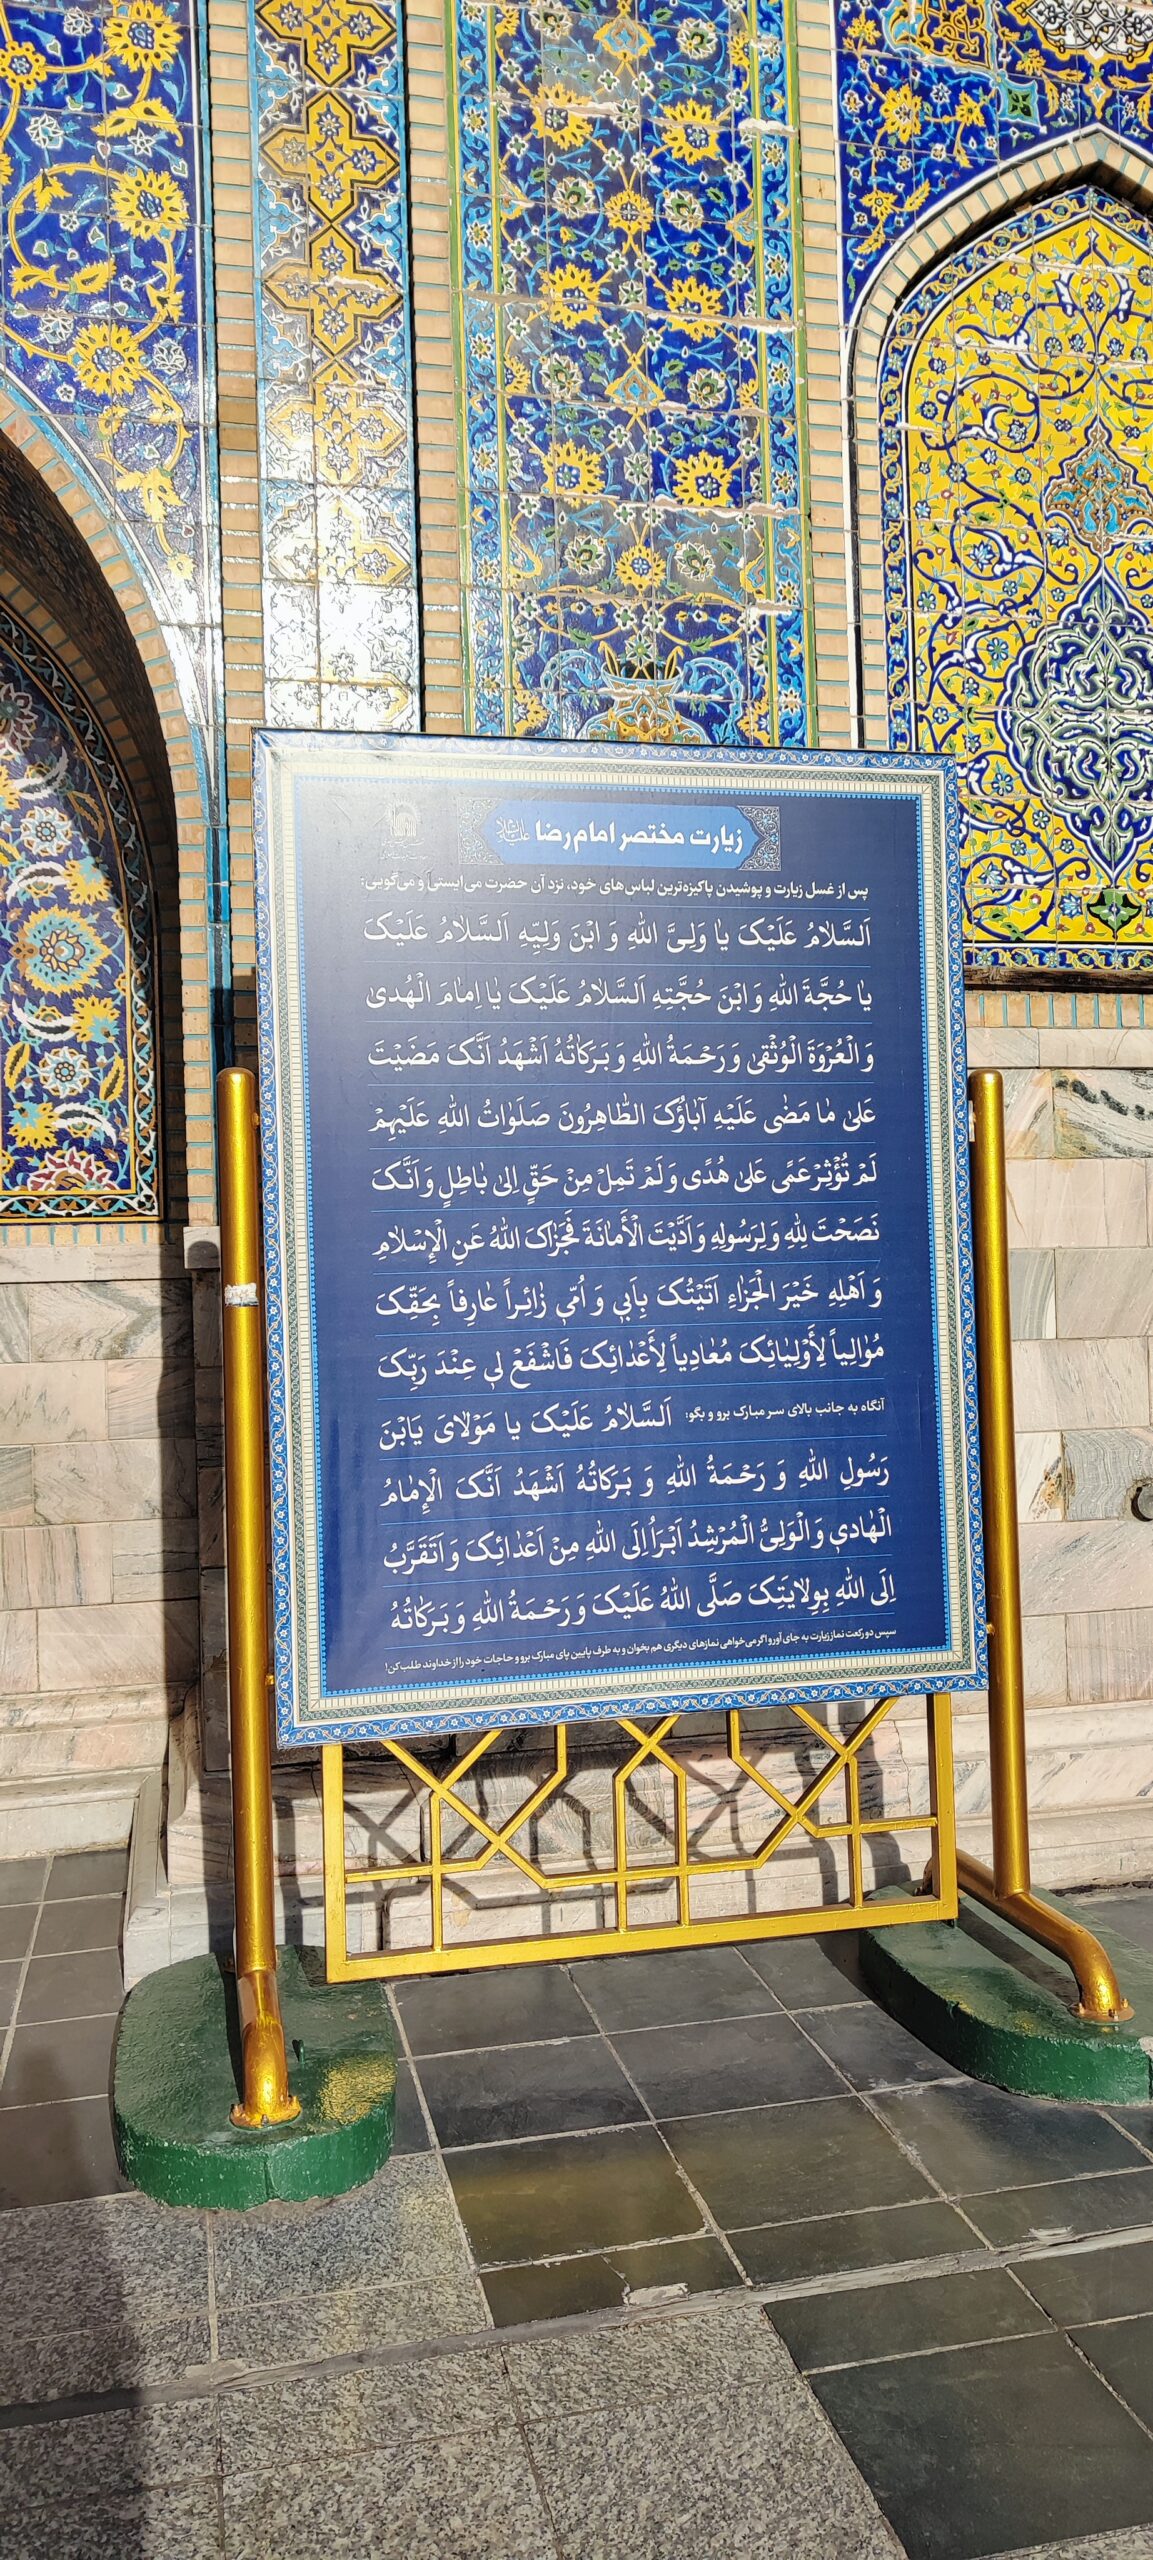 زیارت مختصر امام رضا علیه‌السلام
پس از غسل زیارت و پوشیدن پاکیزه‌ترین لباس‌های خود، نزد آن حضرت می‌ایستی و می‌گویی:
اَلسَّلامُ عَلَیْکَ یا وَلِیَّ اللهِ وَ ابْنَ وَلِیِّهِ اَلسَّلامُ عَلَیْکَ
یا حُجَّةَ اللهِ وَ ابْنَ حُجَّتِهِ اَلسَّلامُ عَلَیْکَ یا اِمامَ الْهُدیٰ
وَ الْعُرْوَةَ الْوُثْقیٰ وَ رَحْمَةُ اللهِ وَ بَرَکاتُهُ اَشْهَدُ اَنَّکَ مَضَیْتَ
عَلیٰ ما مَضٰی عَلَیْهِ آباؤُکَ الطّاهِرُونَ صَلَواتُ اللهِ عَلَیْهِمْ
لَمْ تُؤْثِرْ عَمًی عَلیٰ هُدًی وَ لَمْ تَمِلْ مِنْ حَقٍّ اِلیٰ باطِلٍ وَ اَنَّکَ
نَصَحْتَ لِلّٰهِ وَ لِرَسُولِهِ وَ اَدَّیْتَ الْأَمانَةَ فَجَزاکَ اللهُ عَنِ الْإِسْلامِ
وَ اَهْلِهِ خَیْرَ الْجَزاءِ اَتَیْتُکَ بِاَبی وَ اُمّی زائِراً عارِفاً بِحَقِّکَ
مُوالِیاً لِأَوْلِیائِکَ مُعادِیاً لِأَعْدائِکَ فَاشْفَعْ لی عِنْدَ رَبِّکَ
آنگاه به جانب بالای سر مبارک برو و بگو: اَلسَّلامُ عَلَیْکَ یا مَوْلایَ یَابْنَ
رَسُولِ اللهِ وَ رَحْمَةُ اللهِ وَ بَرَکاتُهُ اَشْهَدُ اَنَّکَ الْإِمامُ
الْهادی وَ الْوَلِیُّ الْمُرْشِدُ اَبْرَأُ اِلَی اللهِ مِنْ اَعْدائِکَ وَ اَتَقَرَّبُ
اِلَی اللهِ بِوِلایَتِکَ صَلَّی اللهُ عَلَیْکَ وَ رَحْمَةُ اللهِ وَ بَرَکاتُهُ
سپس دو رکعت نماز زیارت به جای آور و اگر می‌خواهی نمازهای دیگری هم بخوان و به طرف پایین پای مبارک برو و حاجات خود را از خداوند طلب کن!